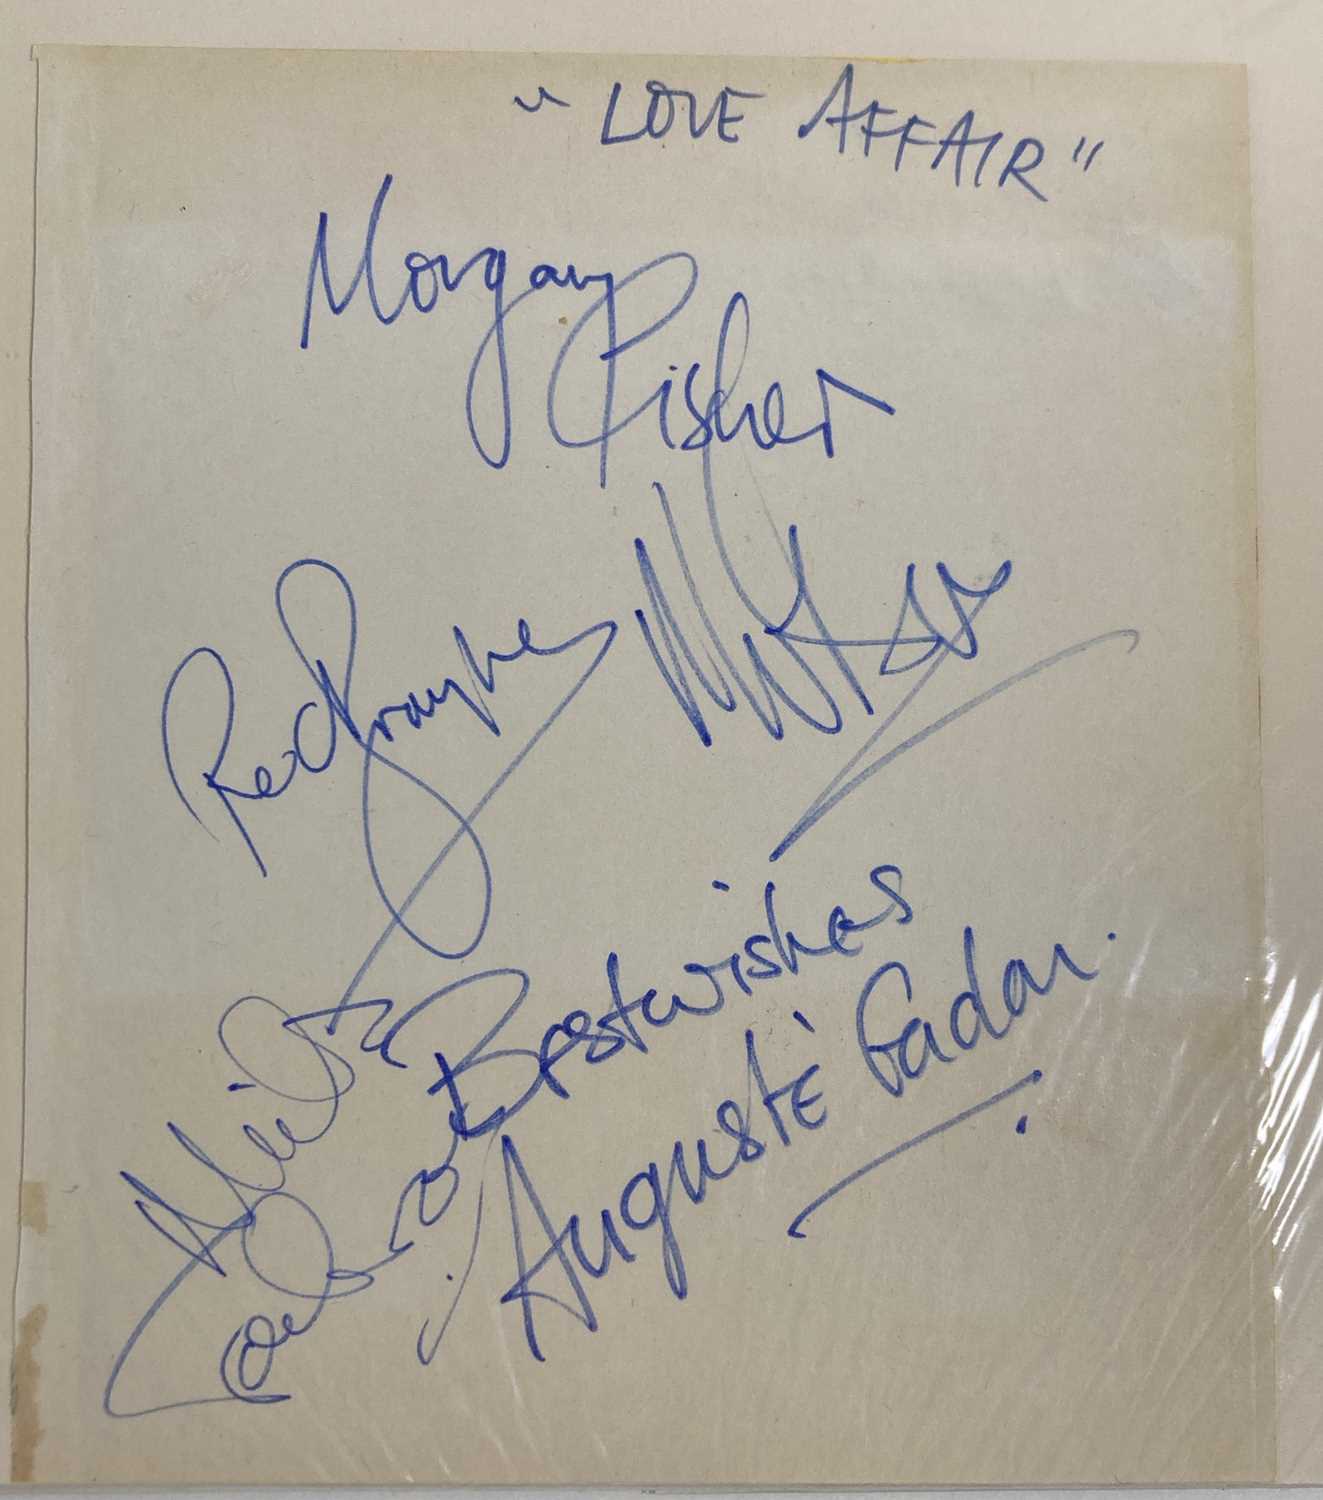 " LOVE AFFAIR "
Morgan
Fisher
Rex Brayley
Best wishes
Augusté Eadon.